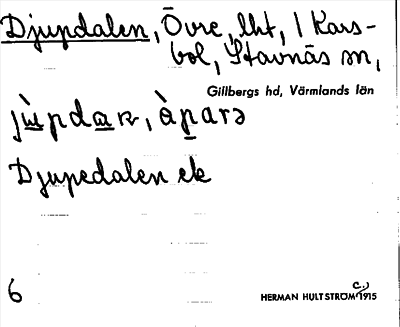 Djupdalen, Övre, lht, / Kars-
bol, Stavnäs sn,
Gillbergs hd, Värmlands län
àparə
Djupedalen ek
6
HERMAN HULTSTRÖM 1915